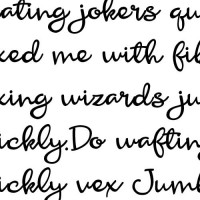 ating jokers qu
xed me with fi
xing wizards ju
ickly.Do wafting
ickly vex Jum